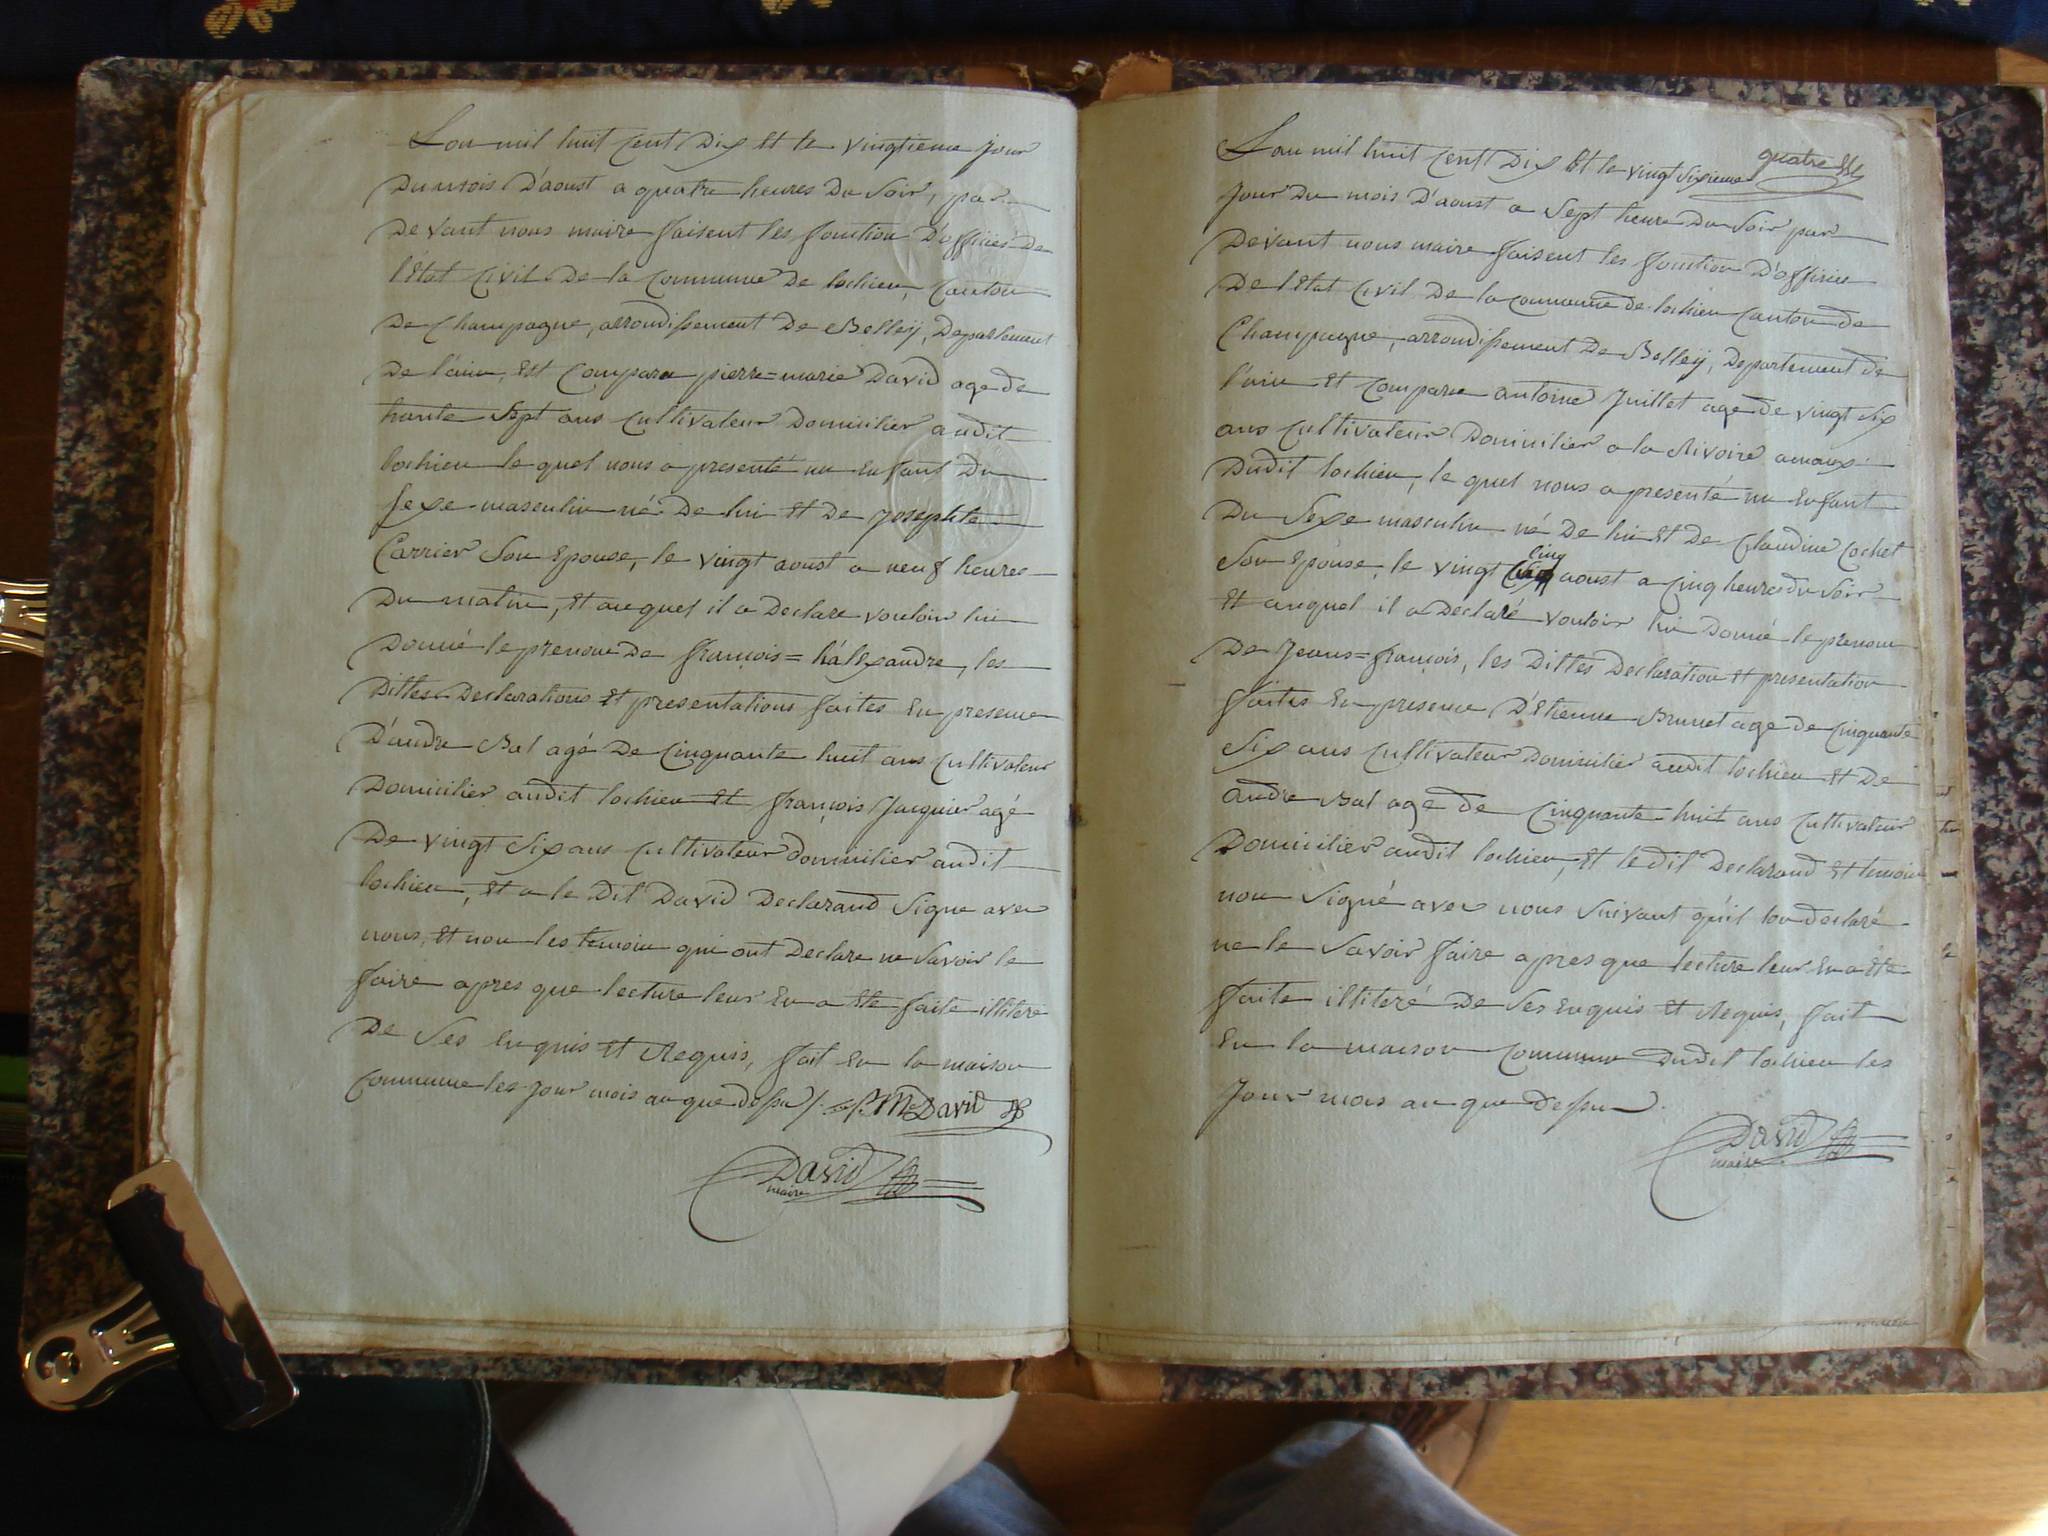 Lan mil huit Cent Dix Et le vingtieme jour
Du mois D'aoust a quatre heures Du Soir, par
De vant nous maire faisent les fonction D'officié De
l'Etat Civil De la Commune De lochieu, Canton
De Champagne, arrondissement De Belleÿ, Departement
De l'ain, Est Comparu pierre=marie David age de
trante Sept ans Cultivateur Domicilier audit
lochieu le quel nous a presenté un Enfant Du
Sexe masculin né De lui Et De Josephte
Carrier Son Epouse, le vingt aoust a neuf heures
Du matin, Et auquel il a Declare vouloir lui
Donné le prenom De françois=háléxandre, les
Dittes Declarations Et presentations faites En presence
D'andre Bal agé De Cinquante huit ans Cultivateur
Domicilier audit lochieu Et françois Jacquier agé
De vingt Six ans Cultivateur domicilier audit
lochieu, Et a le Dit David Declarand Signe avec
nous, Et non les temoin qui ont Declare ne Savoir le
faire apres que lecture leur En a Ete faite illitere
De Ses Enquis Et Requis, fait En la maison
Commune les jour mois an que dessu /. P. M. David
David
maire
quatre
Lan mil huit Cent Dix Et le vingt Sixieme
jour Du mois D'aoust a Sept heure Du Soir par
Devant nous maire faisent les fonction D'officier
De l'Etat Civil De la Commune de lochieu Canton de
Champagne, arrondissement De Belleÿ, Departement de
l'ain Et Comparu antoine Juillet age de vingt Six
ans Cultivateur Domicilier a la Rivoire amaux
Dudit lochieu, le quel nous a presenté un Enfant
Du Sexe masculin né De lui Et De Claudine Cochet
Cinq
Son Epouse, le vingt aoust a Cinq heures du Soir
Et auquel il a Declaré vouloir lui Donné le prenom
De Jeans=françois, les Dittes Declaration Et presentation
faites En presence D'Etienne Brunet age de Cinquante
Six ans Cultivateur Domicilier audit lochieu Et De
andre Bal age De Cinquante huit ans Cultivateur
Domicilier audit lochieu, Et le dit Declarand Et temoin
non Signé avec nous Suivant qu'il lon declaré
ne le Savoir faire apres que lecture leur En a Ete
faite illiteré De Ses Enquis Et Requis, fait
En la maison Commune Dudit lochieu les
Jour mois an que Dessu
David
maire